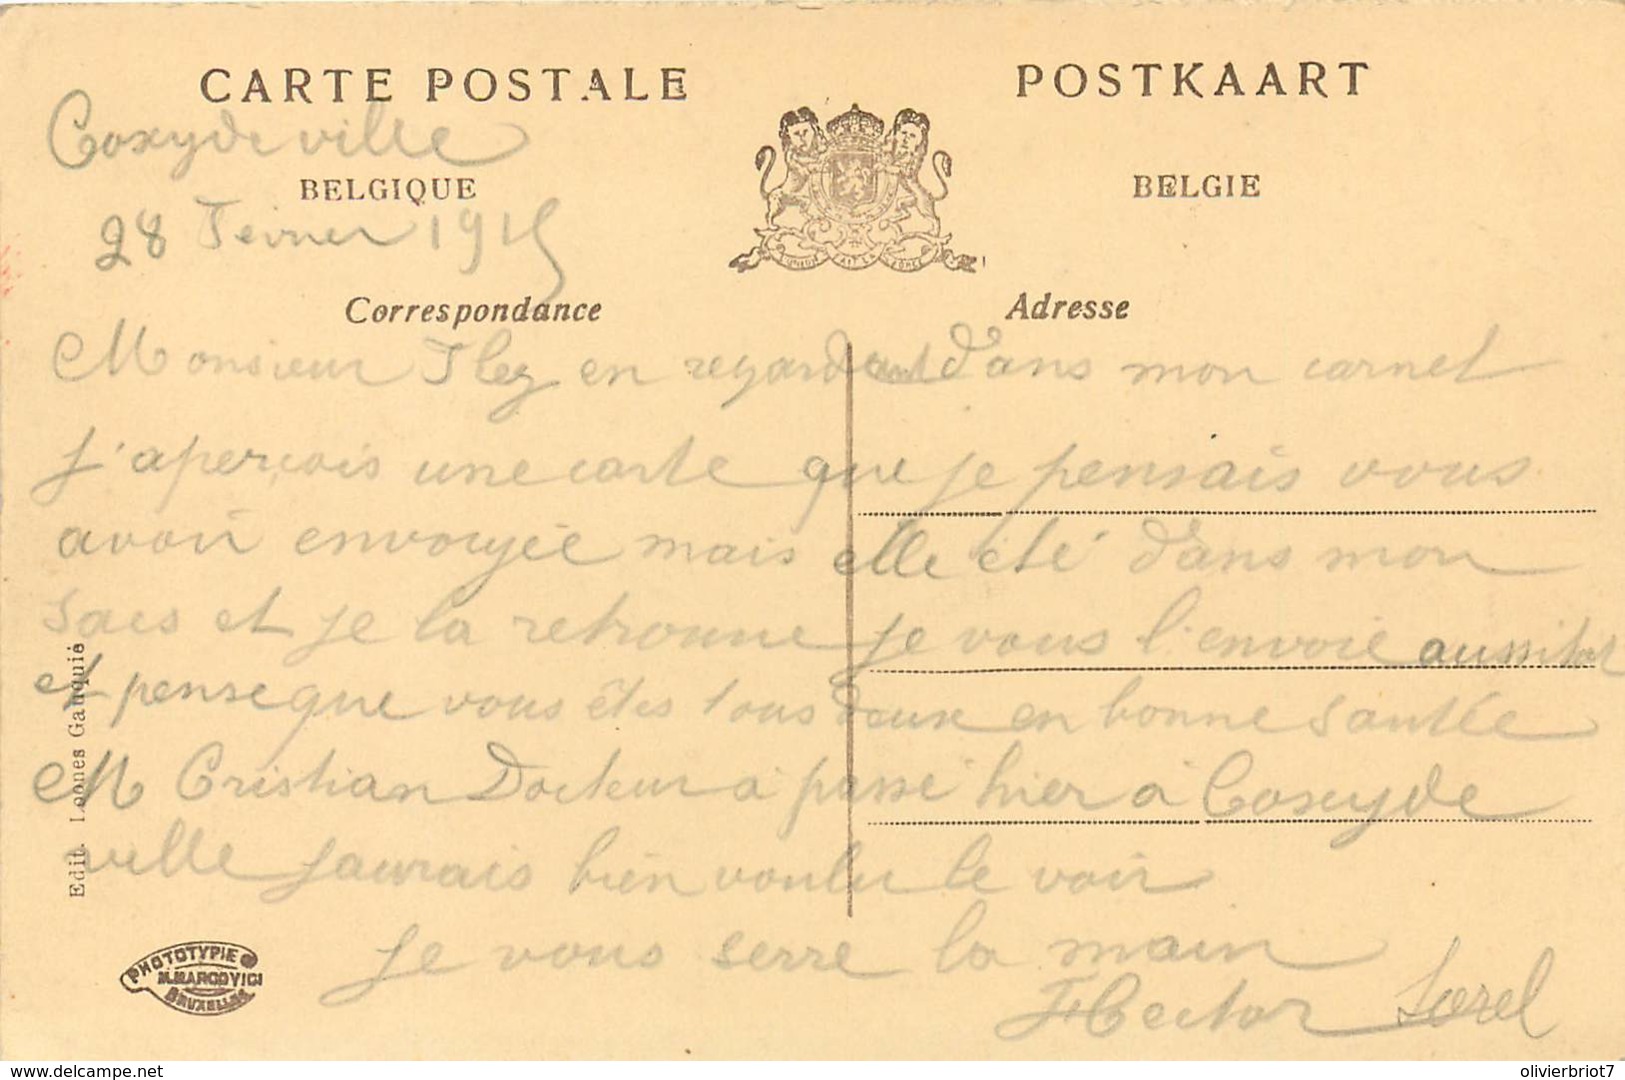 CARTE POSTALE
POSTKAART
Coxyde ville
BELGIQUE
BELGIE
28 Fevrier 1915
L'UNION FAIT LA FORCE
Correspondance
Adresse
Monsieur en regardant dans mon carnet
j'aperçois une carte que je pensais vous
avoir envoyée mais elle été dans mon
sacs et je la retrouve je vous l'envoie aussitot
et pense que vous êtes tous deux en bonne santée
M Cristian Docteur a passé hier à Coxyde
ville jaurais bien voulu le voir
je vous serre la main
Hector Sorel
Edit. Loones Ganquié
PHOTOTYPIE
M.MARCOVICI
BRUXELLES
www.delcampe.net
olivierbriot7